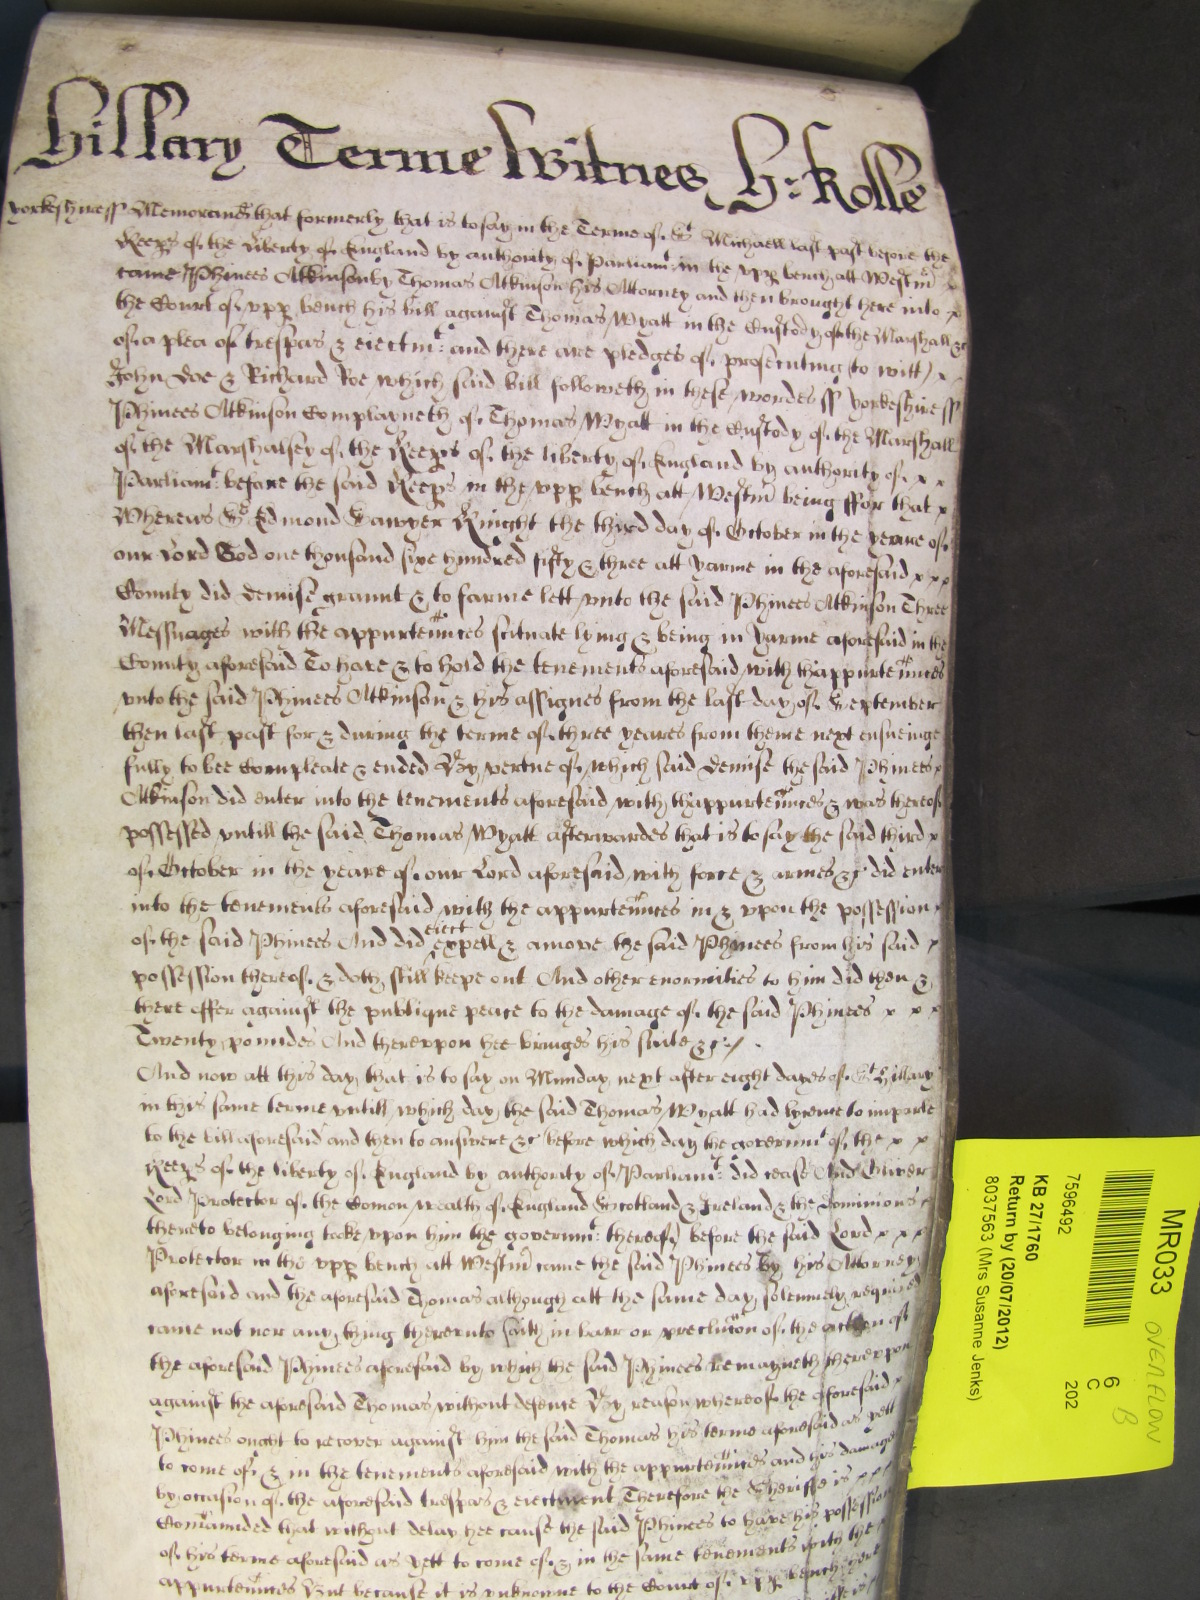 Hillary Terme Witnes H: Rolle
Yorkeshire ss Memorand that formerly that is to say in the Terme of St Michaell last past before the
Keeps of the Liberty of England by authority of Parliamt: in the upp bench att Westm x
came Phinees Atkinson by Thomas Atkinson his Attorney and then brought here into x
the Court of upp bench his bill against Thomas Wyatt in the Custody of the Marshall &c
of a plea of trespas & eiectmt: and there are pledges of prosecuting (to witt) x
John Doe & Richard Roe which said bill followeth in these wordes ss Yorkeshire ss
Phinees Atkinson Complayneth of Thomas Wyatt in the Custody of the Marshall
of the Marshalsey of the Keeps of the liberty of England by authority of x x
Parliamt: before the said Keeps in the upp bench att Westm being ffor that x
Whereas Sr Edmond Sawyer Knight the third day of October in the yeare of
our Lord God one thousand sixe hundred fifty & three att Yarme in the aforesaid x x x
County did demise graunt & to farme lett unto the said Phinees Atkinson Three
Messuages with the appurtennces scituate lying & being in Yarme aforesaid in the
County aforesaid To have & to hold the tenements aforesaid with thappurtennces
unto the said Phinees Atkinson & his assignes from the last day of September
then last past for & during the terme of three yeares from thence next ensueinge
fully to bee Compleate & ended By vertue of which said demise the said Phinees x
Atkinson did enter into the tenements aforesaid with thappurtennces & was thereof
possessed untill the said Thomas Wyatt afterwardes that is to say the said third x
of October in the yeare of our Lord aforesaid with force & armes &c did enter
into the tenements aforesaid with the appurtennces in & upon the possession
of the said Phinees And did eiect expell & amove the said Phinees from his said x
possession thereof & doth still keepe out And other enormities to him did then &
there offer against the publique peace to the damage of the said Phinees x x x
Twenty poundes And thereupon hee bringes his suite &c: /
And now att this day that is to say on Munday next after eight dayes of St Hillary
in this same terme untill which day the said Thomas Wyatt had lycence to imparle
to the bill aforesaid and then to answere &c before which day the governmt of the x x
Keeps of the liberty of England by authority of Parliamt: did cease And Oliver
Lord Protector of the Comon wealth of England Scotland & Ireland & the Dominions
thereto belonging tooke upon him the governmt: thereof before the said Lord x x x
Protector in the upp bench att Westm came the said Phinees by his Attorney
aforesaid and the aforesaid Thomas although att the same day solemnely required
came not nor any thing thereunto saith in barr or preclusion of the action of
the aforesaid Phinees aforesaid by which the said Phinees remayneth thereupon
against the aforesaid Thomas without defence By reason whereof the aforesaid x
Phinees ought to recover against him the said Thomas his terme aforesaid as yett
to come of & in the tenements aforesaid with the appurtennces and his damages
by occasion of the aforesaid trespas & eiectment Therefore the Sheriffe is x x x
Comaunded that without delay hee cause the said Phinees to have his possession
of his terme aforesaid as yett to come of & in the same tenements with the
appurtennces But because it is unknowne to the Court of upp bench here
MR033
7596492
KB 27/1760
Return by (20/07/2012)
8037563 (Mrs Susanne Jenks)
6
C
202
OVERFLOW
B